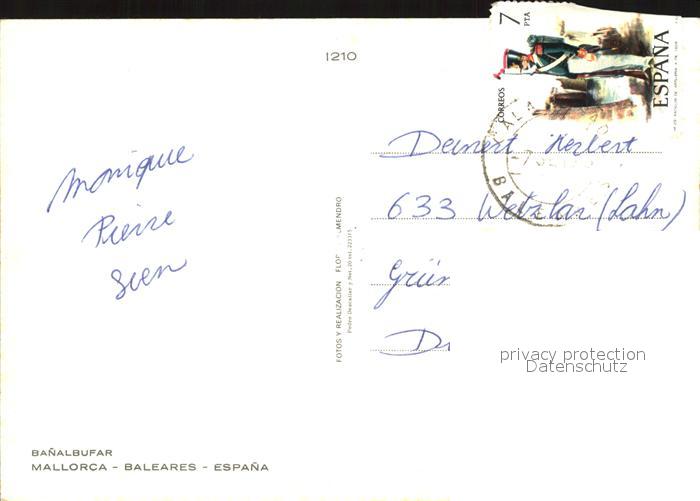 1210
7 PTA
CORREOS
ESPAÑA
Monique
Pierre
Sven
Deinert Herbert
633 Wetzlar (Lahn)
Grün
D
FOTOS Y REALIZACION FLOR LMENDRO
BAÑALBUFAR
MALLORCA - BALEARES - ESPAÑA
privacy protection
Datenschutz